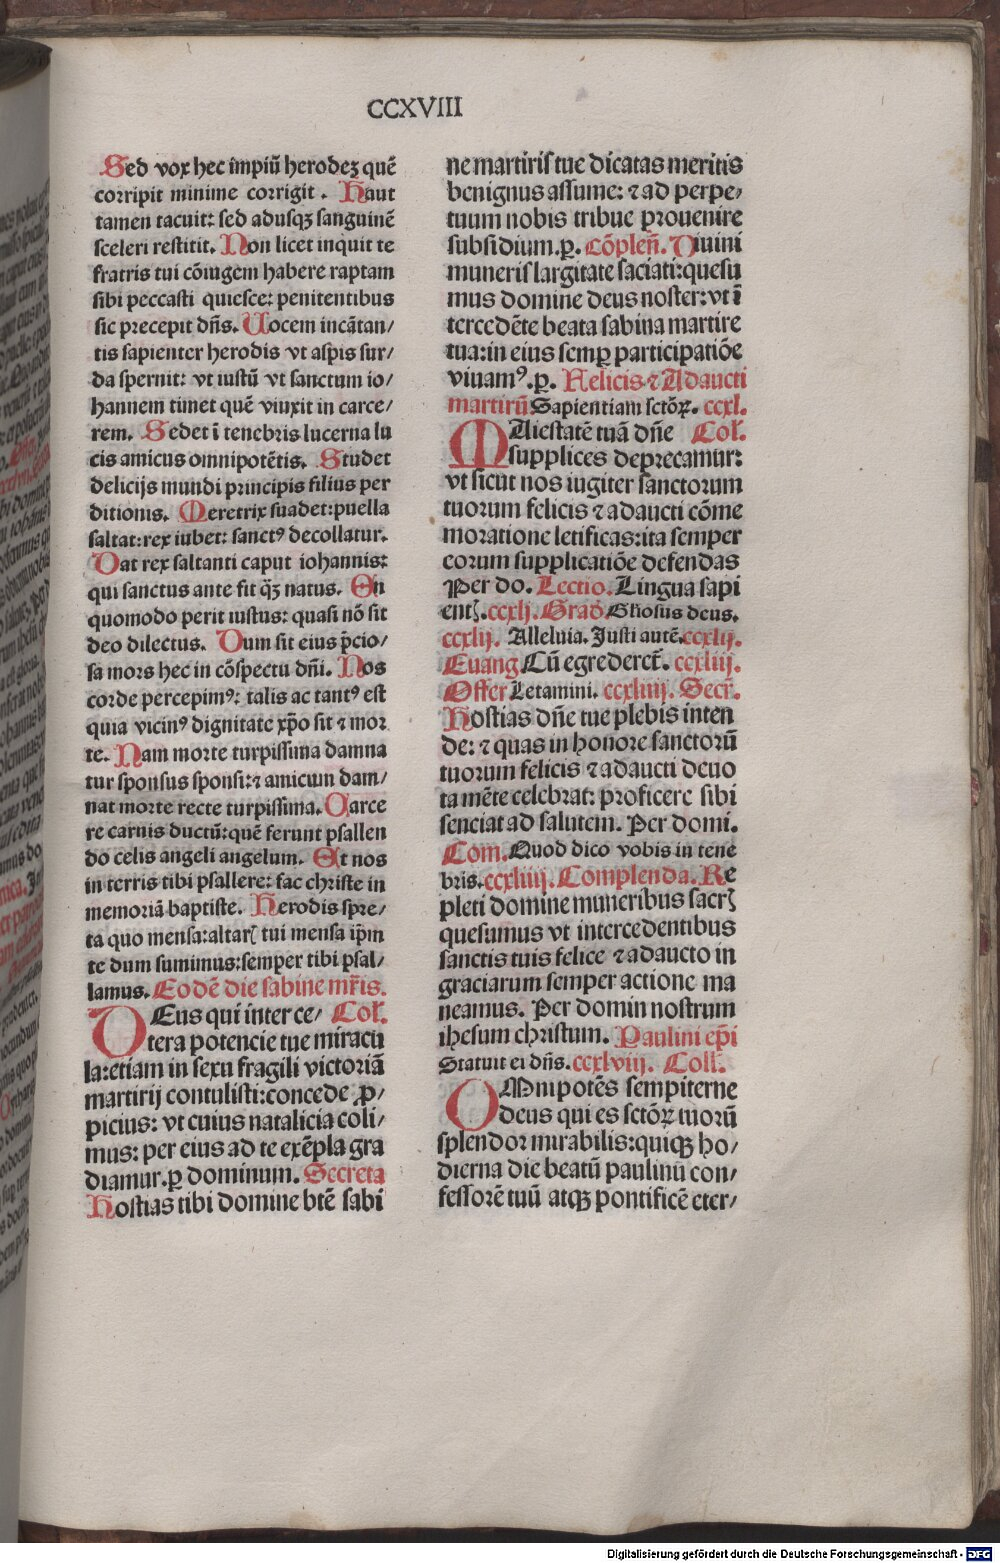 CCXVIII
Sed vox hec impiū herodeʒ quē
corripit minime corrigit . Haut
tamen tacuit: sed adusqꝫ sanguinē
sceleri restitit. Non licet inquit te
fratris tui cōiugem habere raptam
sibi peccasti quiesce: penitentibus
sic precepit dñs. Uocem incātan/
tis sapienter herodis vt aspis sur/
da spernit: vt iustū vt sanctum io/
hannem timet quē viuxit in carce/
rem. Sedet ī tenebris lucerna lu
cis amicus omnipotētis. Studet
delicijs mundi principis filius per
ditionis. Meretrix suadet:puella
saltat:rex iubet: sanctꝰ decollatur.
Dat rex saltanti caput iohannis:
qui sanctus ante fit qꝫ̄ natus. En
quomodo perit iustus: quasi nō sit
deo dilectus. Dum sit eius p̄cio/
sa mors hec in cōspectu dñi. Nos
corde percepimꝰ: talis ac tantꝰ est
quia vicinꝰ dignitate xp̄o sit ⁊ mor
te. Nam morte turpissima damna
tur sponsus sponsi:⁊ amicun dam/
nat morte recte turpissima. Carce
re carnis ductū:quē ferunt psallen
do celis angeli angelum. Et nos
in terris tibi psallere: fac christe in
memoriā baptiste. Herodis spre/
ta quo mensa:altarꝭ tui mensa ip̄m
te dum sumimus:semper tibi psal/
lamus. Eodē die sabine mr̄is.
DEus qui inter ce/ Col̄.
tera potencie tue miracu
la:etiam in sexu fragili victoriā
martirij contulisti:concede ꝓ/
picius: vt cuius natalicia coli/
mus: per eius ad te exēpla gra
diamur.ꝑ dominum. Secreta
Hostias tibi domine btē sabī
ne martiris tue dicatas meritis
benignus assume: ⁊ ad perpe/
tuum nobis tribue prouenire
subsidium.ꝑ. Cōpleñ. Diuini
muneris largitate saciati:quesu
mus domine deus noster: vt ī
tercedēte beata sabina martire
tua:in eius semꝑ participatiōe
viuamꝰ.ꝑ. Felicis ⁊ Adaucti
martirū Sapientiam sctōꝝ. ccxl.
MAiestatē tuā dñe Col̄.
supplices deprecamur:
vt sicut nos iugiter sanctorum
tuorum felicis ⁊ adaucti cōme
moratione letificas:ita semper
eorum supplicatiōe defendas
Per do. Lectio. Lingua sapi
entꝭ. ccxlj. Grad̄ Gliosus deus.
ccxlij. Alleluia. Justi autē. ccxlij.
Euang Cū egrederct̄. ccxliij.
Offer Letamini. ccxliiij. Secr̄.
Hostias dñe tue plebis inten
de: ⁊ quas in honore sanctorū
tuorum felicis ⁊ adaucti deuo
ta mēte celebrat: proficere sibi
senciat ad salutem. Per domi.
Com. Quod dico vobis in tene
bris. ccxliiij. Complenda. Re
pleti domine muneribus sacrꝭ
quesumus vt intercedentibus
sanctis tuis felice ⁊ adaucto in
graciarum semper actione ma
neamus. Per domin nostrum
ihesum christum. Paulini ep̄i
Statuit ei dñs. ccxlviij. Coll̄.
OMnipotēs sempiterne
deus qui es sctōꝝ tuorū
splendor mirabilis:quiqꝫ ho/
dierna die beatū paulinū con/
fessorē tuū atqꝫ pontificē eter/
Digitalisierung gefördert durch die Deutsche Forschungsgemeinschaft - DFG